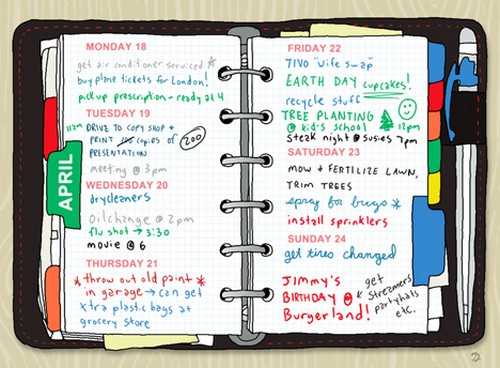 APRIL
MONDAY 18
get air conditioner serviced
buy plane tickets for London!
pick up prescription - ready at 4
TUESDAY 19
11am
DRIVE TO COPY SHOP +
PRINT 100 copies of
PRESENTATION
200
meeting @ 3pm
WEDNESDAY 20
drycleaners
Oilchange @ 2pm
flu shot → 3:30
movie @ 6
THURSDAY 21
* throw out old paint *
in garage → can get
xtra plastic bags at
grocery store
FRIDAY 22
TIVO "Wife Swap"
EARTH DAY cupcakes!
recycle stuff
TREE PLANTING
@ kid's school
12pm
Steak night @ Susies 7pm
SATURDAY 23
MOW + FERTILIZE LAWN,
TRIM TREES
spray for bugs *
install sprinklers
SUNDAY 24
get tires changed
JIMMY'S
BIRTHDAY @
Burgerland!
* get
streamers
partyhats
etc.